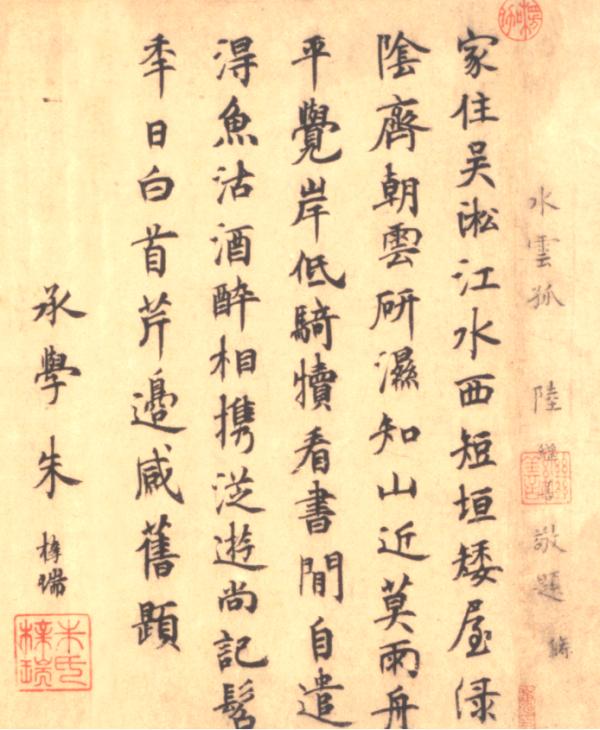 水雲孤 陸繼善敬題
家住吴淞江水西短垣矮屋渌
陰齊朝雲研濕知山近莫雨舟
平覺岸低騎犢看書閒自遣
淂魚沽酒醉相携從遊尚記髫
秊日白首芹邊感舊題
承學朱瑞